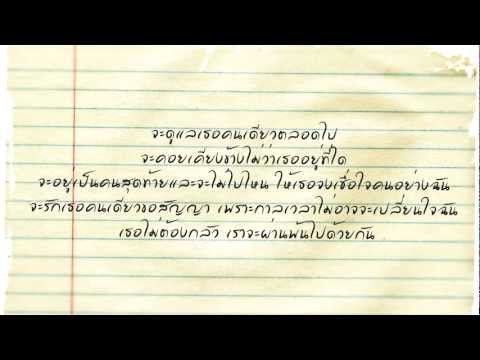 จะดูแลเธอคนเดียวตลอดไป
จะคอยเคียงข้างไม่ว่าเธออยู่ที่ใด
จะอยู่เป็นคนสุดท้ายและจะไม่ไปไหน ให้เธอจงเชื่อใจคนอย่างฉัน
จะรักเธอคนเดียวขอสัญญา เพราะกาลเวลาไม่อาจจะเปลี่ยนใจฉัน
เธอไม่ต้องกลัว เราจะผ่านพ้นไปด้วยกัน